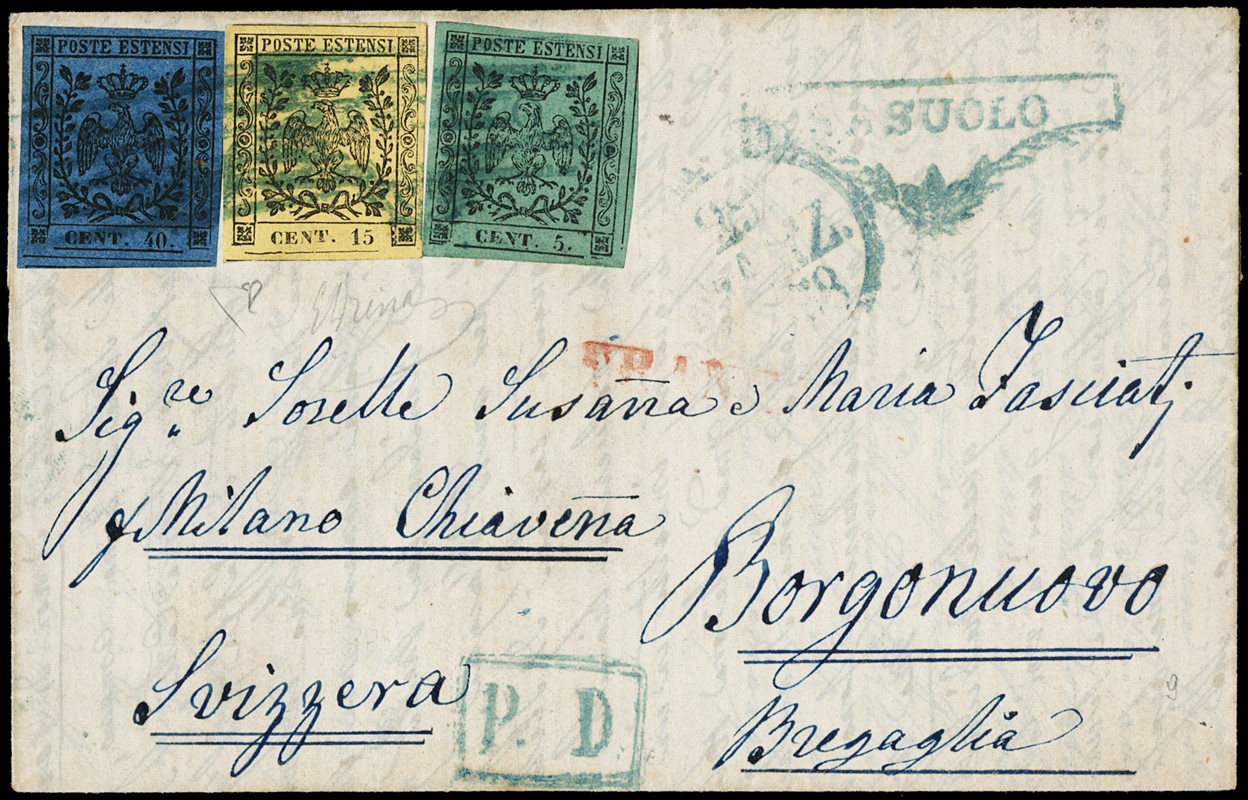 POSTE ESTENSI
CENT. 40.
POSTE ESTENSI
CENT. 15
POSTE ESTENSI
CENT. 5.
SUOLO
Sig.re Sorelle Susaña e Maria Fasciati
Milano Chiaveña
Borgonuovo
Svizzera
P. D
Bregaglia
9